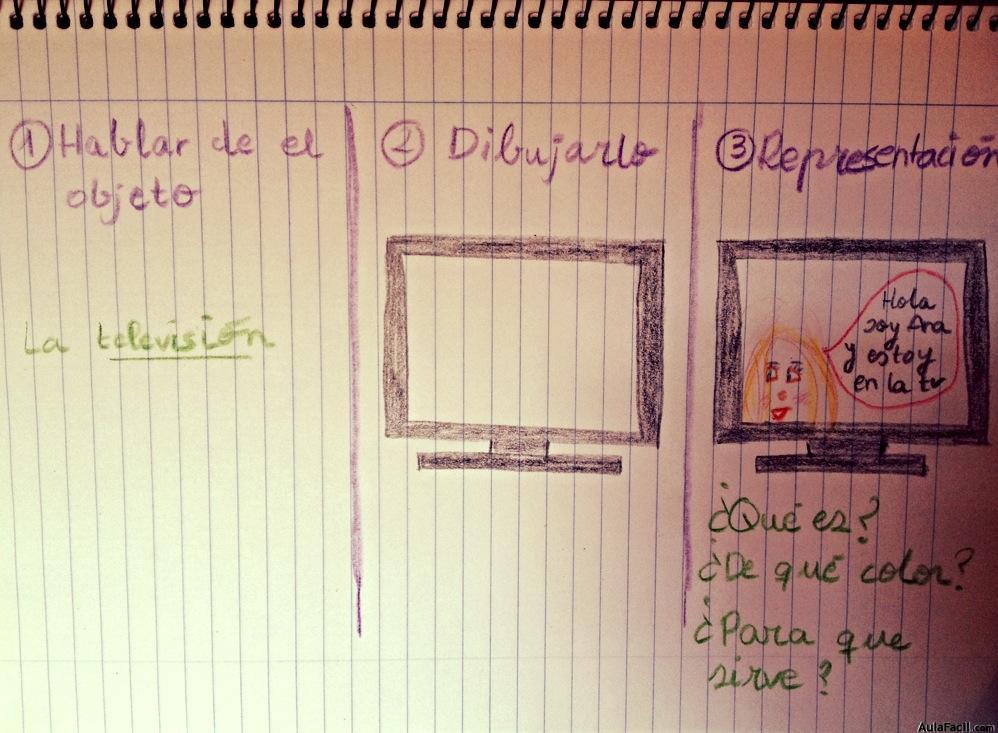 ① Hablar de el
objeto
La televisión
② Dibujarlo
③ Representación
Hola
soy Ana
y estoy
en la tv
¿Qué es?
¿De qué color?
¿Para que
sirve?
AulaFacil.com